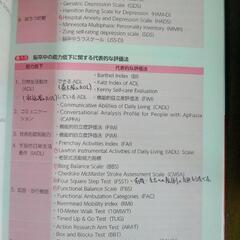 - Geriatric Depression Scale (GDS)
- Hamilton Rating Scale for Depression (HAM-D)
- Hospital Anxiety and Depression Scale (HADS)
- Minnesota Multiphasic Personality Inventory (MMPI)
- Zung self-rating depression scale (SDS)
- 脳卒中うつスケール (JSS-D)
脳卒中の能力低下に関する代表的な評価法
能力低下 代表的な評価法
1. 日常生活動作 (ADL) できるADL
- Barthel Index (BI)
- Katz Index of ADL
- Kenny Self-care Evaluation
しているADL
- 機能的自立度評価表 (FIM)
2. コミュニケーション
- Communicative Abilities of Daily Living (CADL)
- Conversational Analysis Profile for People with Aphasia (CAPPA)
- 機能的自立度評価表 (FIM)
- 機能的自立度評価表 (FIM)
- Frenchay Activities Index (FAI)
- Lawton Instrumental Activities of Daily Living (IADL) Scale
- 老研式活動能力指標
- Berg Balance Scale (BBS)
- Chedoke McMaster Stroke Assessment Scale (CMSA)
- Four Square Step Test (FSST)
- Functional Balance Scale (FBS)
- Functional Ambulation Categories (FAC)
- Rivermead Mobility Index (RMI)
- 10-Meter Walk Test (10MWT)
- Timed Up and Go Test (TUG)
- Action Research Arm Test (ARAT)
- Box and Blocks Test (BBT)